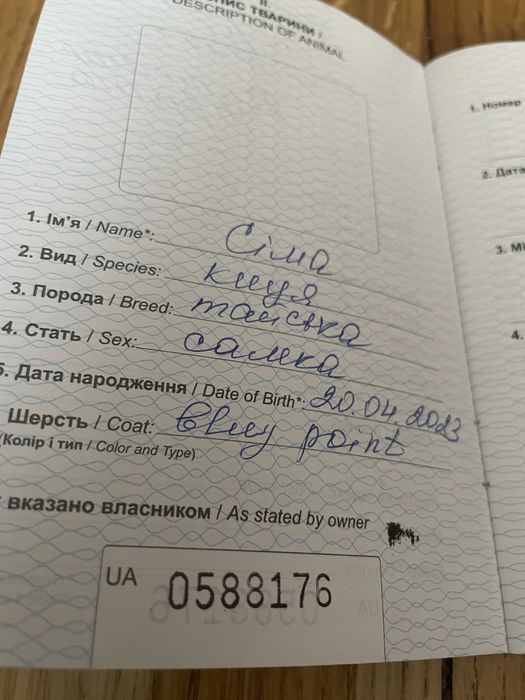 II.
ОПИС ТВАРИНИ /
DESCRIPTION OF ANIMAL
1. Ім'я / Name*: Сіма
2. Вид / Species: киця
3. Порода / Breed: тайська
4. Стать / Sex: самка
5. Дата народження / Date of Birth*: 20.04.2023
Шерсть / Coat: bluy point
(Колір і тип / Color and Type)
вказано власником / As stated by owner
UA 0588176
1. Номер
2. Дата
3.
4.